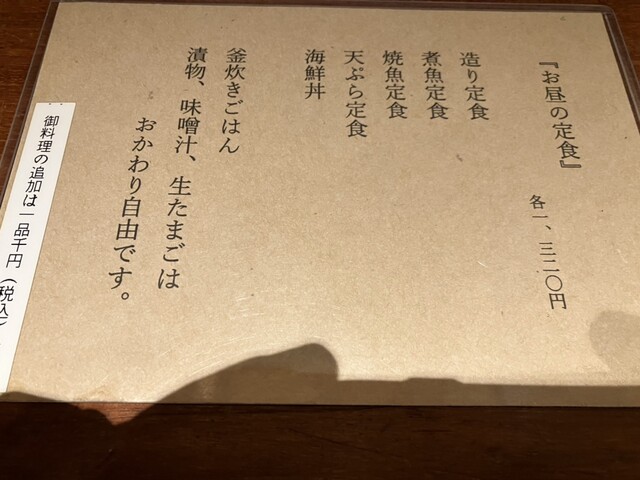 『お昼の定食』
各一、三二〇円
造り定食
煮魚定食
焼魚定食
天ぷら定食
海鮮丼
釜炊きごはん
漬物、味噌汁、生たまごは
おかわり自由です。
御料理の追加は一品千円（税込）